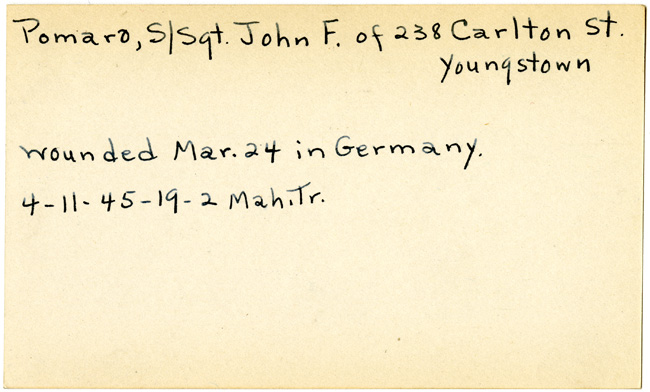 Pomaro, S/Sgt. John F. of 238 Carlton St.
Youngstown
wounded Mar. 24 in Germany.
4-11-45-19-2 Mah.Tr.